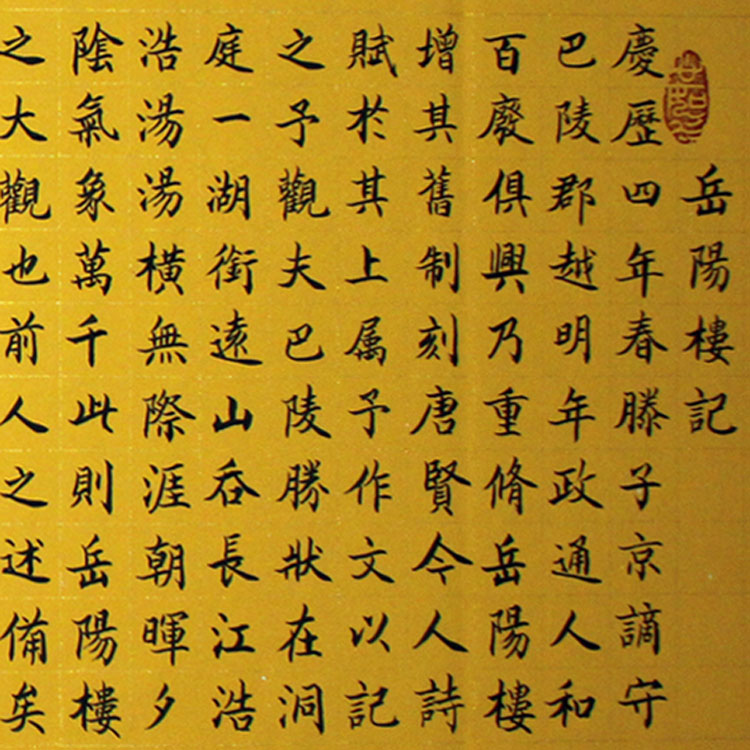 岳陽樓記
慶歷四年春滕子京謫守
巴陵郡越明年政通人和
百廢俱興乃重脩岳陽樓
增其舊制刻唐賢今人詩
賦於其上属予作文以記
之予觀夫巴陵勝狀在洞
庭一湖銜遠山吞長江浩
浩湯湯橫無際涯朝暉夕
陰氣象萬千此則岳陽樓
之大觀也前人之述備矣